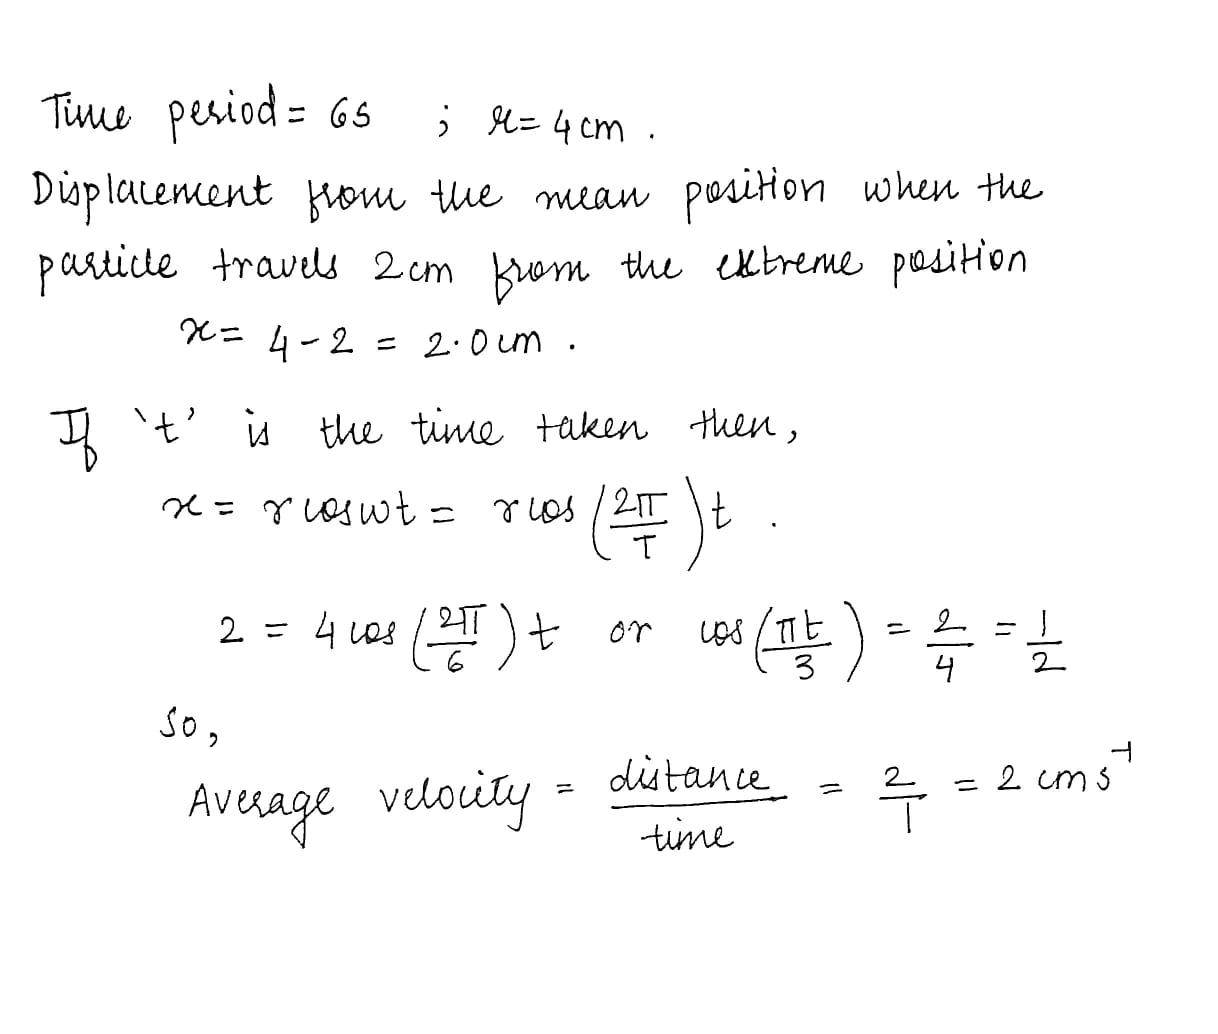 Time period = 6s ; r = 4 cm .
Displacement from the mean position when the
particle travels 2 cm from the extreme position
x = 4 - 2 = 2.0 cm .
If 't' is the time taken then,
x = r cos wt = r cos (2π/T) t .
2 = 4 cos (2π/6) t or cos (πt/3) = 2/4 = 1/2
So,
Average velocity = distance/time = 2/1 = 2 cm s⁻¹